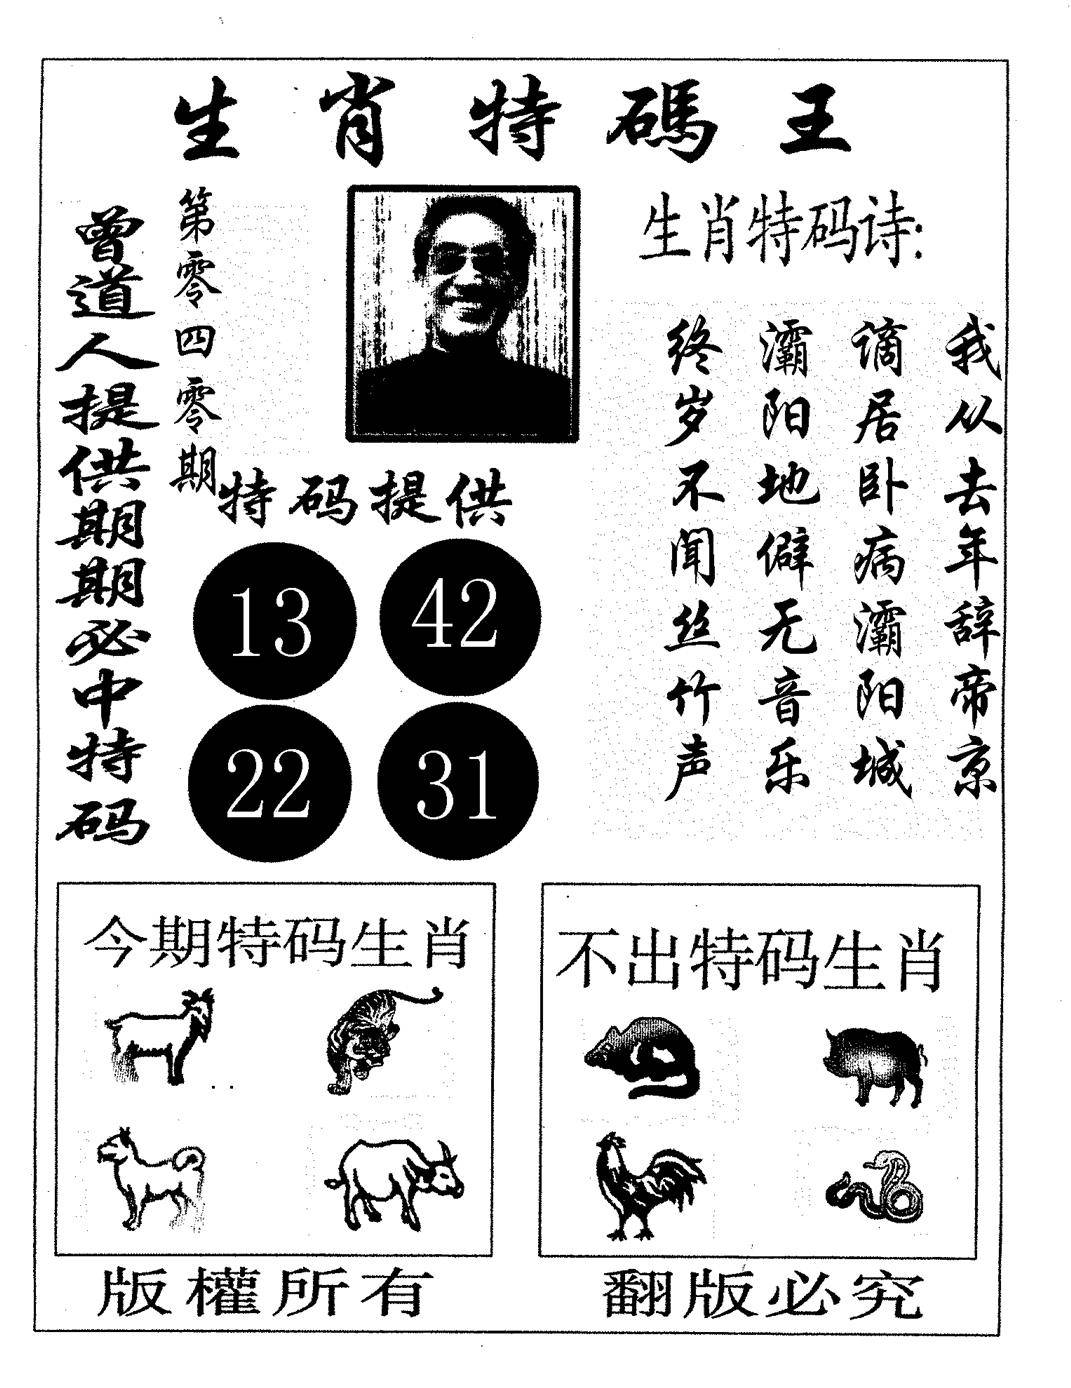 生肖特碼王
曾道人提供期期必中特码
第零四零期
生肖特码诗:
我从去年辞帝京
谪居卧病灞阳城
灞阳地僻无音乐
终岁不闻丝竹声
特码提供
13 42
22 31
今期特码生肖
不出特码生肖
版權所有
翻版必究